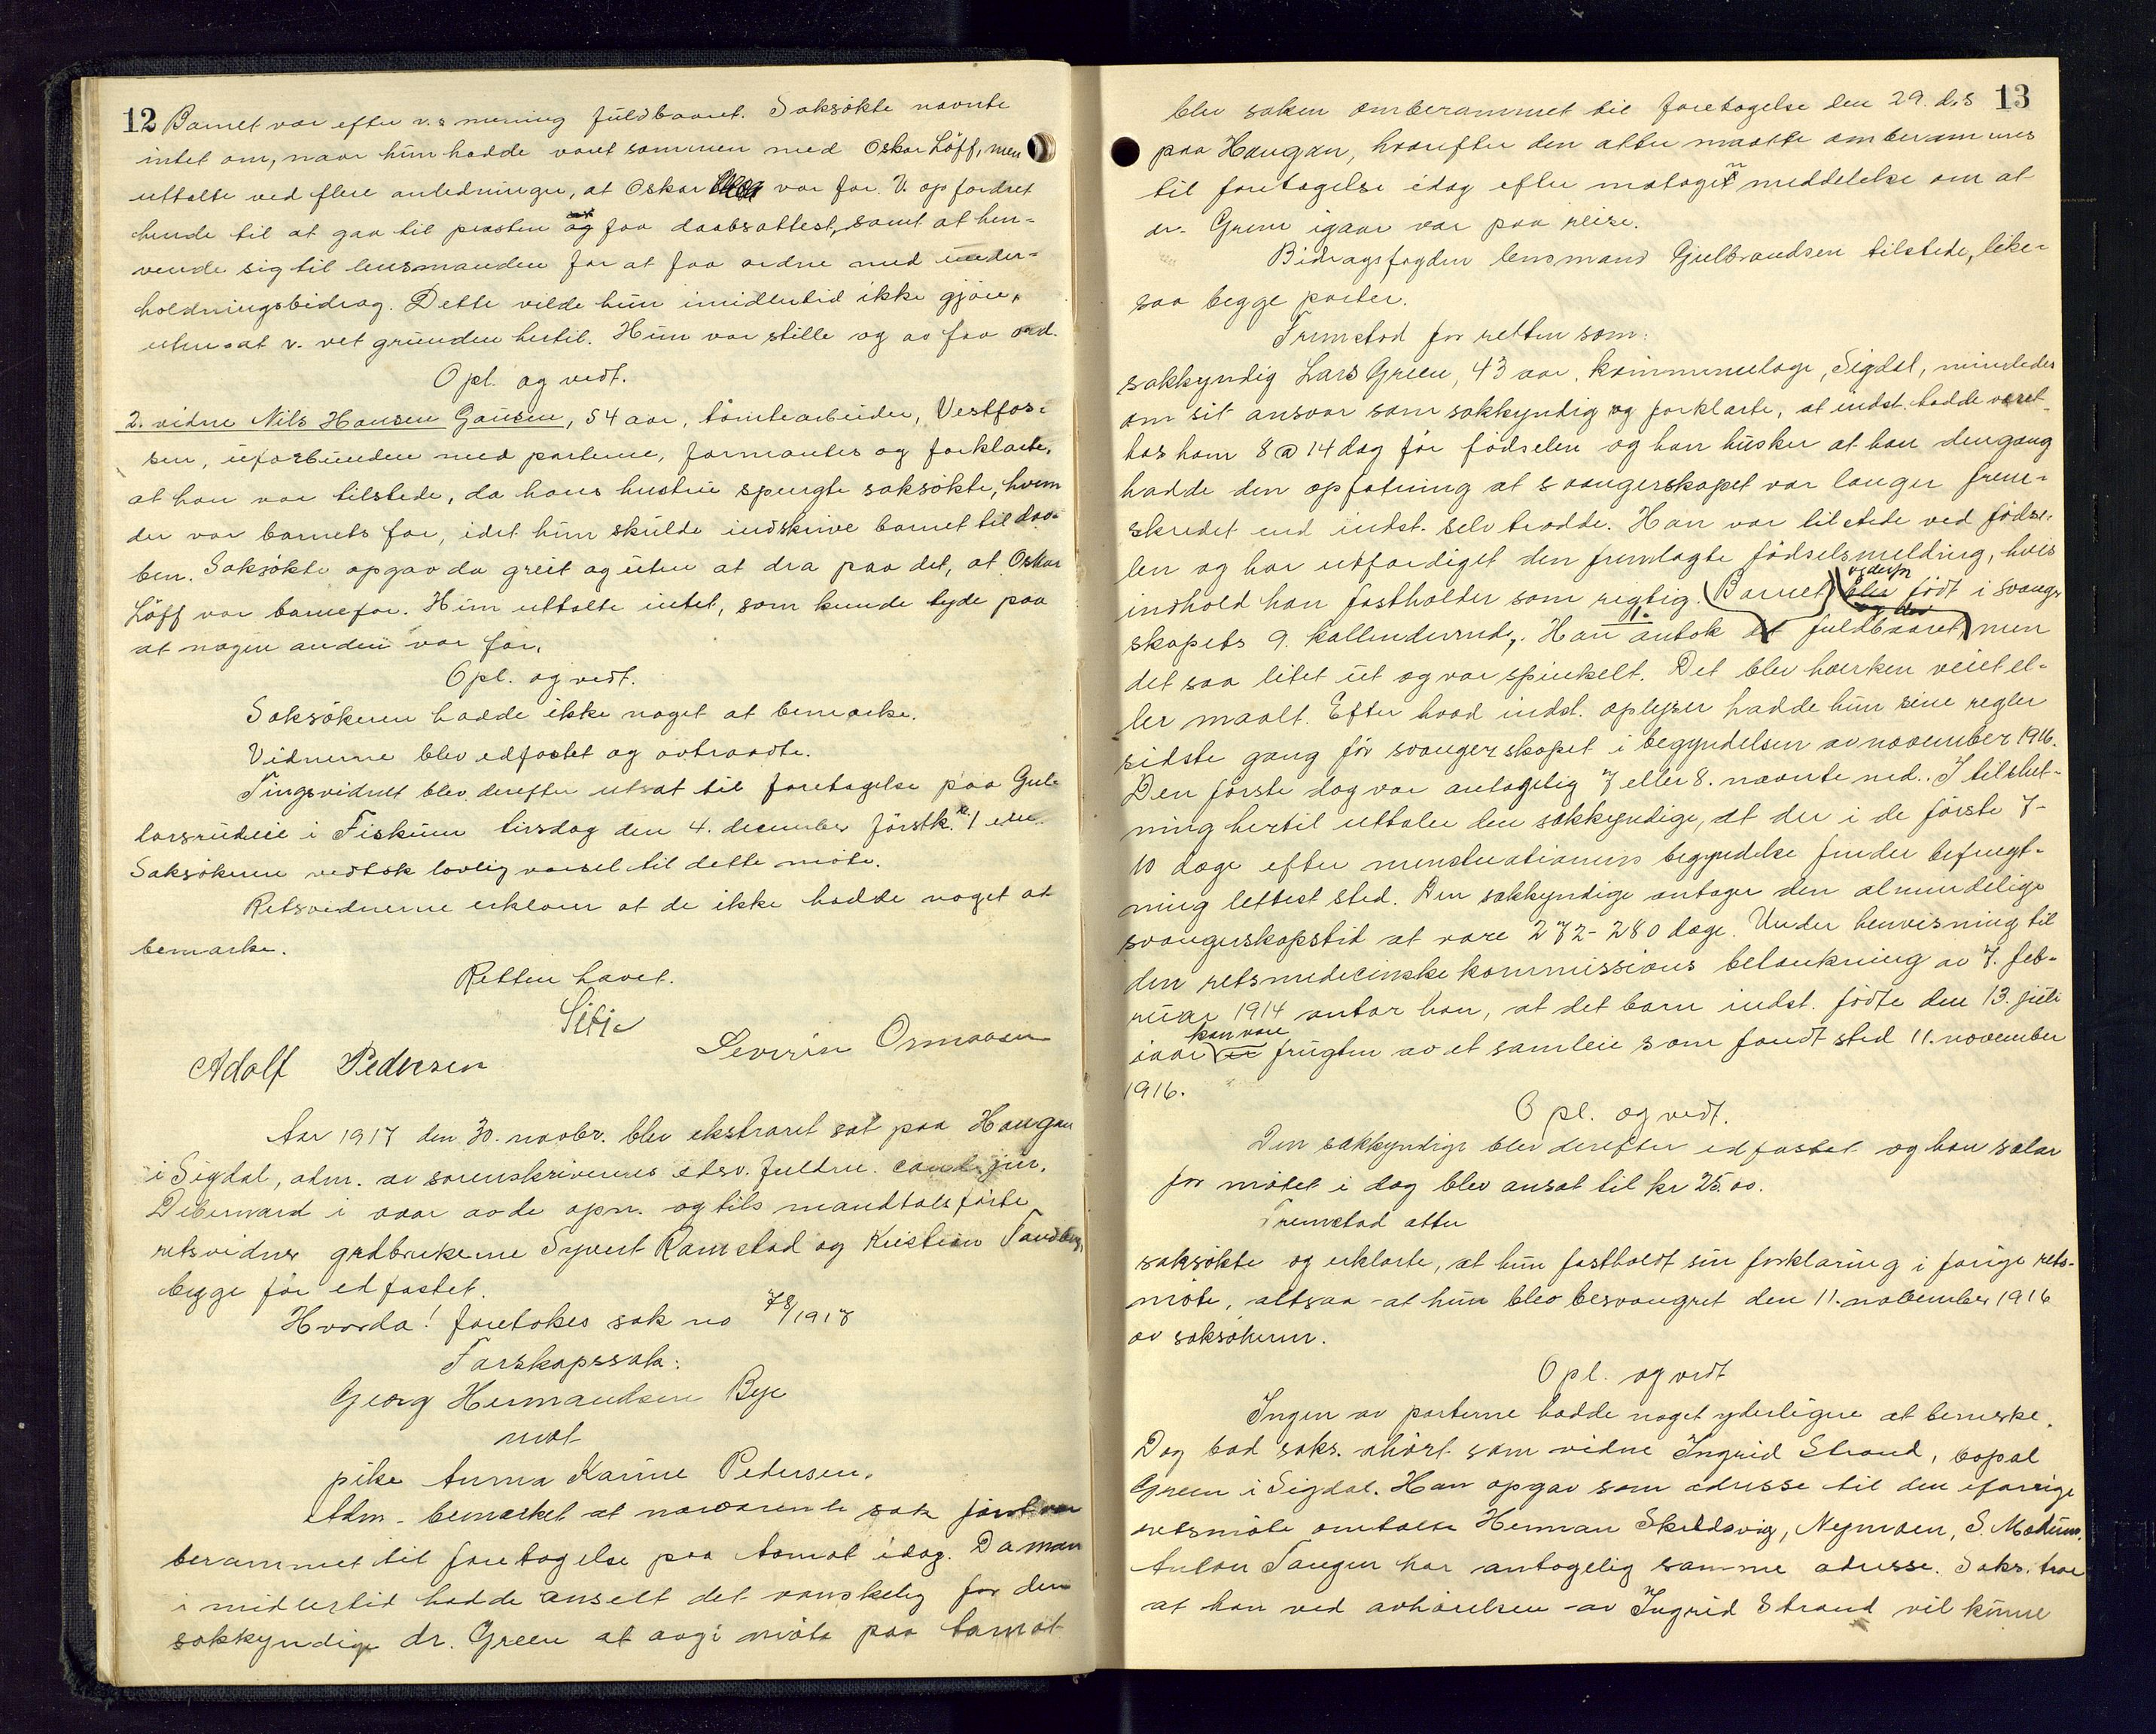 12 Barnet var efter v.s mening fuldbaaret. Saksøkte nævnte
intet om, naar hun hadde været sammen med Oskar Löff, men
uttalte ved flere anledninger, at Oskar var far. V. opfordret
hende til at gaa til prosten og faa daabsattest, samt at hen-
vende sig til lensmanden for at faa ordne med under-
holdningsbidrag. Dette vilde hun imidlertid ikke gjøre,
uten at v. vet grunden hertil. Hun var stille og av faa ord.
Opl. og vedt.
2. vidne Nils Hansen Gausen, 54 aar, tomtearbeider, Vestfos-
sen, uforbunden med parterne, formantes og forklarte,
at han var tilstede, da hans hustru spurgte saksøkte, hvem
der var barnets far, idet hun skulde indskrive barnet til daa-
ben. Saksøkte opgav da greit og uten at dra paa det, at Oskar
Löff var barnefar. Hun uttalte intet, som kunde tyde paa
at nogen anden var far.
Opl. og vedt.
Saksøkeren hadde ikke noget at bemærke.
Vidnerne blev edfæstet og avtraadte.
Tingsvidnet blev derefter utsat til foretagelse paa Gul-
larsrudeie i Fiskum tirsdag den 4. december førstk. kl. 1 em.
Saksøkeren vedtok lovlig varsel til dette møte.
Retsvidnerne erklærer at de ikke hadde noget at
bemærke.
Retten hævet.
Sitje
Adolf Pedersen Severin Ormaasen
Aar 1917 den 30. novbr. blev ekstraret sat paa Haugan
i Sigdal, adm. av sorenskriverens edsv. fuldm. cand. jur.
Debernard i nær av de opn. og tils mandtalsførte
retsvidner grdbrukerne Syvert Ramstad og Kristian
begge før edfæstet.
Hvorda! foretokes sak no 78/1917
Farskapssak:
Georg Hermandsen Bye
mot
pike Anna Karine Pedersen.
Adm. bemerket at nærværende sak først var
berammet til foretagelse paa Aamot idag. Da man
imidlertid hadde anseet det vanskelig for den
sakkyndige dr. Green at avgi møte paa Aamot
blev saken omberammet til foretagelse den 29. d.s 13
paa Haugan, hvorefter den atter maatte omberammes
til foretagelse idag efter motagen meddelelse om at
dr. Green igaar var paa reise.
Bidragsfogden lensmand Gulbrandsen tilstede, like-
saa begge parter.
Fremstod for retten som:
sakkyndig Lars Green, 43 aar, kommunelæge, Sigdal, mindedes
om sit ansvar som sakkyndig og forklarte, at indst. hadde været
hos ham 8 @ 14 dag før fødselen og han husker at han dengang
hadde den opfatning at svangerskapet var længer frem-
skredet end indst. selv trodde. Han var tilstede ved fødse-
len og har utfærdiget den fremlagte fødselsmelding, hvis
indhold han fastholder som rigtig. Barnet blev født i svanger
skapets 9. kallendermnd. Han antok det fuldbaaret, men
det saa litet ut og var spinkelt. Det blev hverken veiet el-
ler maalt. Efter hvad indst. oplyser hadde hun sine regler
sidste gang før svangerskapet i begyndelsen av november 1916.
Den første dag var antagelig 7 eller 8. nævnte mnd. I tilslut-
ning hertil uttaler den sakkyndige, at der i de første 7-
10 dage efter menstruationens begyndelse finder befrugt-
ning lettest sted. Den sakkyndige antager den almindelige
svangerskapstid at være 272-280 dage. Under henvisning til
den retsmedicinske kommissions betænkning av 7. feb-
ruar 1914 antar han, at det barn indst. fødte den 13. juli
iaar kan være frugten av et samleie som fandt sted 11. november
1916.
Opl. og vedt.
Den sakkyndige blev derefter edfæstet og hans salær
for møtet i dag blev ansat til kr 25.00.
Fremstod atter
saksøkte og erklærte, at hun fastholdt sin forklaring i forrige rets-
møte, altsaa at hun blev besvangret den 11. november 1916
av saksøkeren.
Opl. og vedt
Ingen av parterne hadde noget yderligere at bemerke.
Dog bad saks. avhørt som vidne Ingrid Strand, bopæl
Green i Sigdal. Han opgav som adresse til den i forrige
retsmøte omtalte Herman Skuldsvig, Nymoen, S. Modum.
Anton Tangen har antagelig samme adresse. Saks. tror
at han ved avhørelsen av Ingrid Strand vil kunne